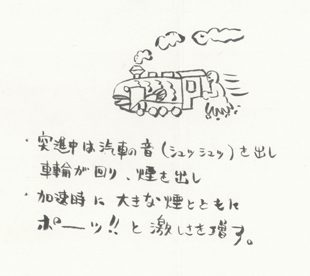 ・突進中は汽車の音(シュッシュッ)を出し
車輪が回り、煙を出し
・加速時に大きな煙とともに
ポーッ!!と激しさを増す。